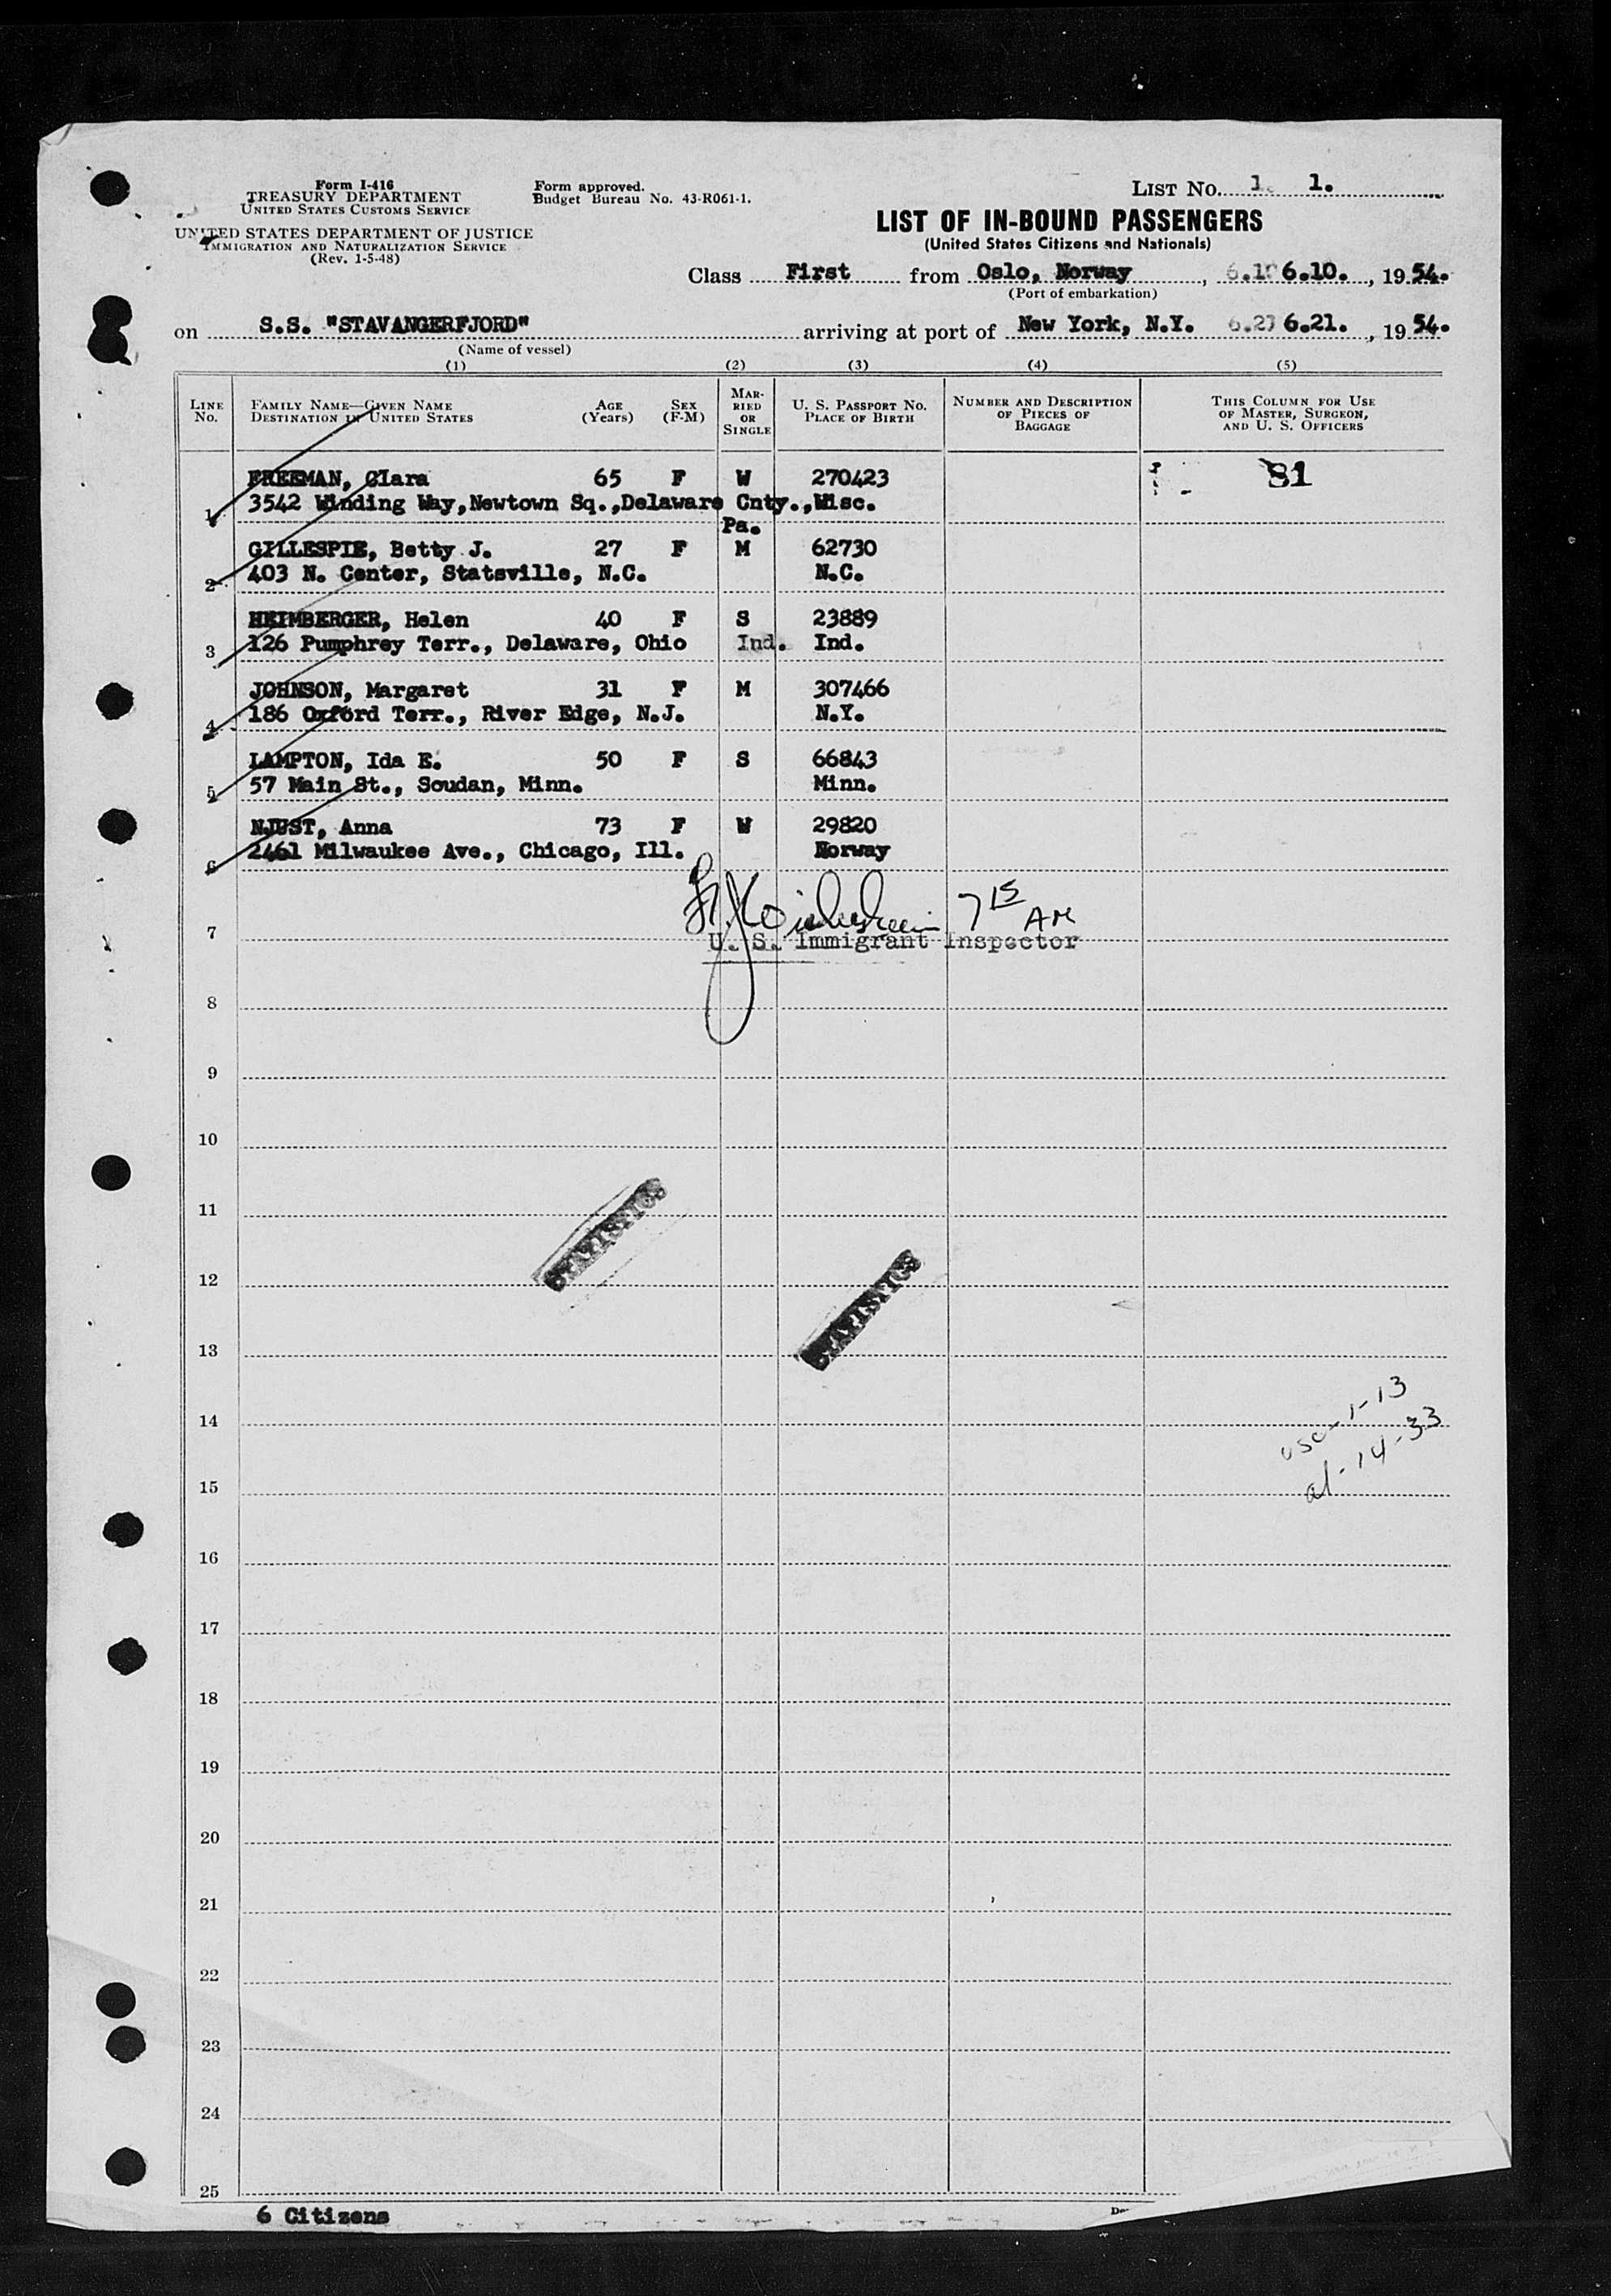 Form I-416
TREASURY DEPARTMENT
UNITED STATES CUSTOMS SERVICE
UNITED STATES DEPARTMENT OF JUSTICE
IMMIGRATION AND NATURALIZATION SERVICE
(Rev. 1-5-48)
Form approved.
Budget Bureau No. 43-R061-1.
LIST NO. 1. 1.
LIST OF IN-BOUND PASSENGERS
(United States Citizens and Nationals)
Class First from Oslo, Norway, 6.10. , 1954.
(Port of embarkation)
on S.S. "STAVANGERFJORD" arriving at port of New York, N.Y. 6.21. , 1954.
(Name of vessel)
(1) (2) (3) (4) (5)
LINE NO.
FAMILY NAME—GIVEN NAME
DESTINATION IN UNITED STATES
AGE (Years)
SEX (F-M)
MARRIED OR SINGLE
U. S. PASSPORT NO.
PLACE OF BIRTH
NUMBER AND DESCRIPTION OF PIECES OF BAGGAGE
THIS COLUMN FOR USE OF MASTER, SURGEON, AND U. S. OFFICERS
FREEMAN, Clara 65 F W 270423 81
1 3542 Winding Way,Newtown Sq.,Delaware Cnty.,Misc.
Pa.
GILLESPIE, Betty J. 27 F M 62730
2 403 N. Center, Statsville, N.C. N.C.
HEIMBERGER, Helen 40 F S 23889
3 126 Pumphrey Terr., Delaware, Ohio Ind. Ind.
JOHNSON, Margaret 31 F M 307466
4 186 Oxford Terr., River Edge, N.J. N.Y.
LAMPTON, Ida E. 50 F S 66843
5 57 Main St., Soudan, Minn. Minn.
NJUST, Anna 73 F W 29820
6 2461 Milwaukee Ave., Chicago, Ill. Norway
7 15 AM
7 U. S. Immigrant Inspector
8
9
10
11
STATISTICS
12
STATISTICS
13
usc-1-13
14
al-14-33
15
16
17
18
19
20
21
22
23
24
25
6 Citizens